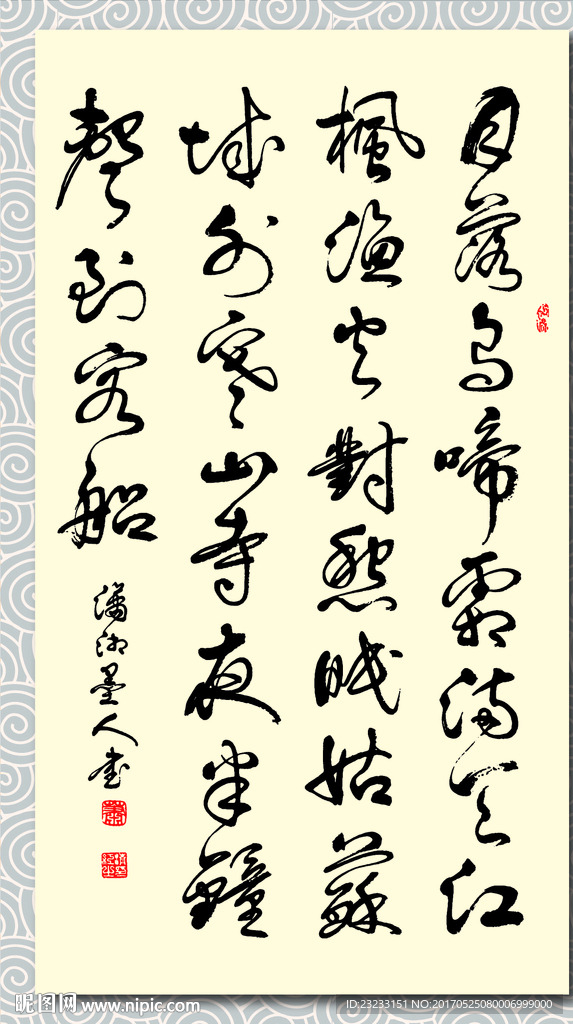 月落烏啼霜滿天江
楓漁火對愁眠姑蘇
城外寒山寺夜半鐘
聲到客船
瀟湘墨人書
昵图网 www.nipic.com
ID:23233151 NO:20170525080006999000